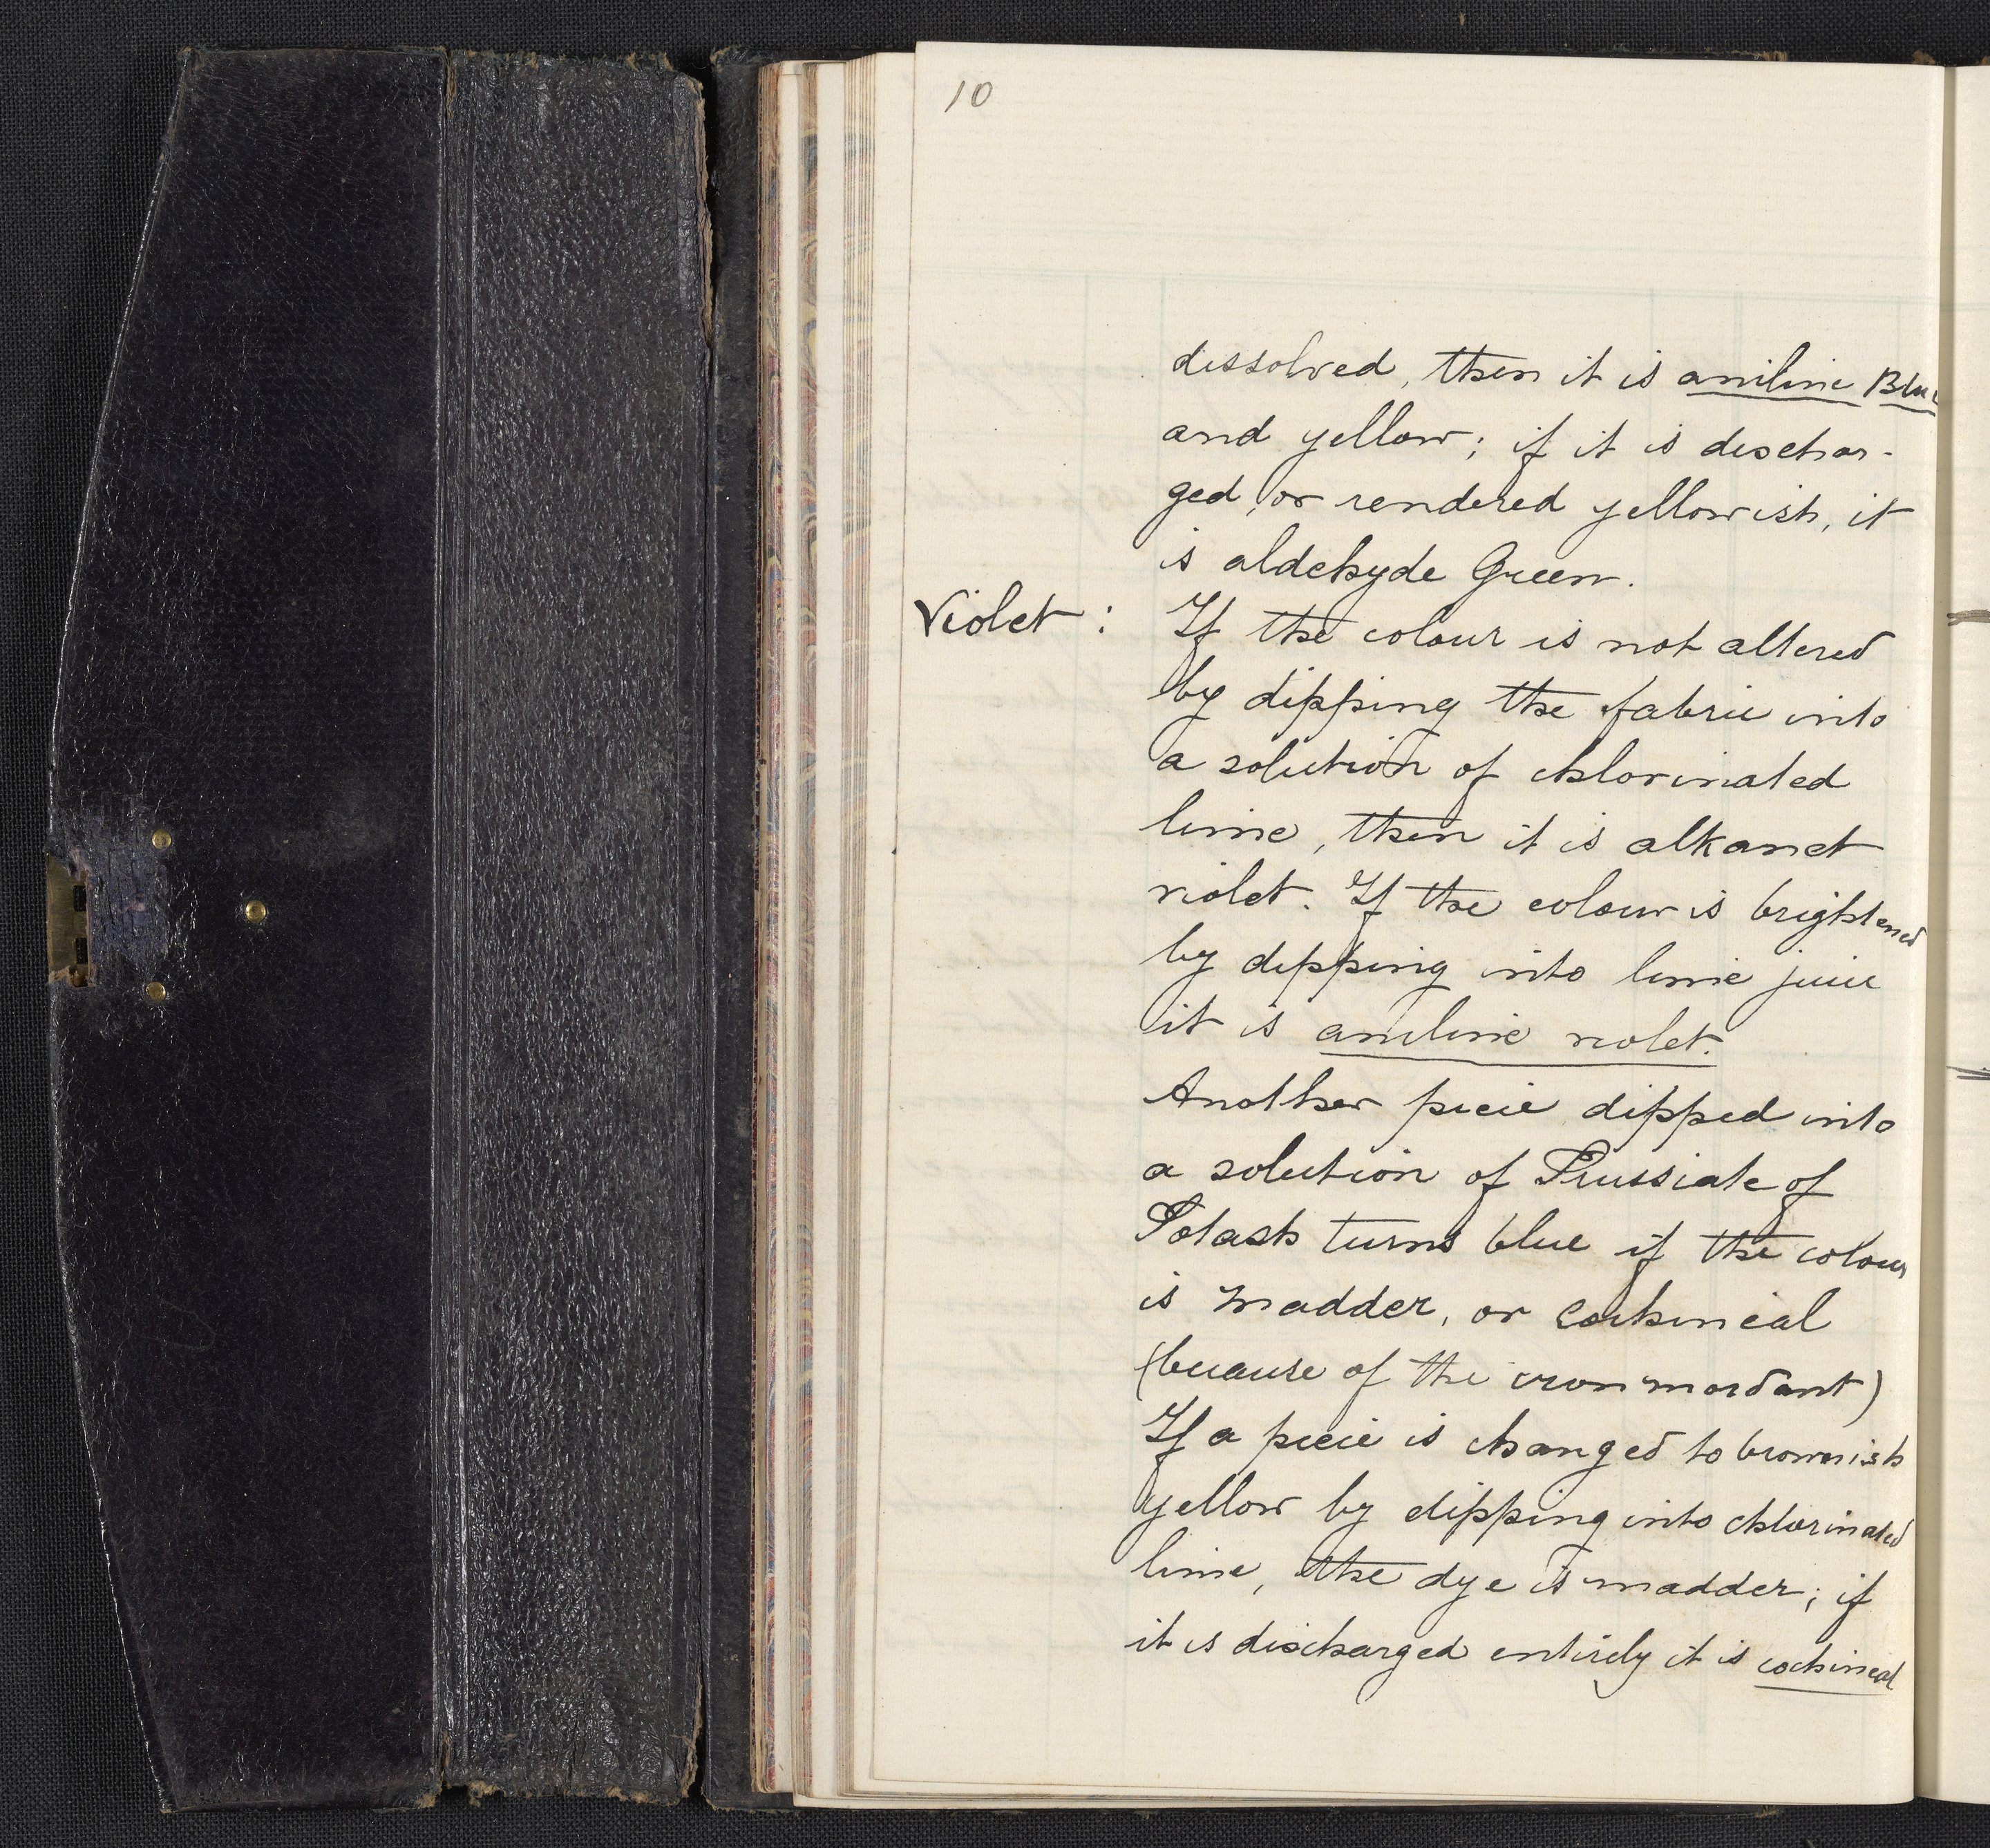 10
dissolved, then it is aniline Blue
and yellow; if it is dischar-
ged, or rendered yellowish, it
is aldehyde Green.
Violet : If the colour is not altered
by dipping the fabric into
a solution of chlorinated
lime, then it is alkanet
violet. If the colour is brightened
by dipping into lime juice
it is aniline violet.
Another piece dipped into
a solution of Prussiate of
Potash turns blue if the colour
is madder, or Cochineal
(because of the iron mordant)
If a piece is changed to brownish
yellow by dipping into chlorinated
lime, the dye is madder; if
it is discharged entirely it is cochineal